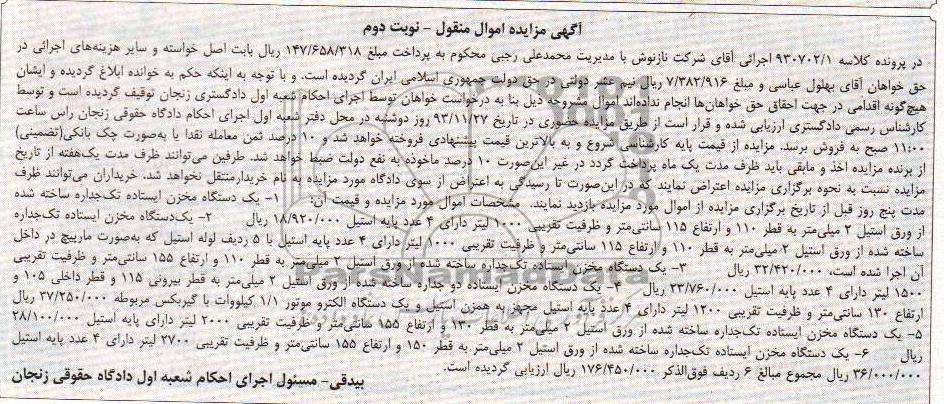 آگهی مزایده اموال منقول - نوبت دوم
در پرونده کلاسه ۹۳۰۷۰۲/۱ اجرائی آقای شرکت نازنوش با مدیریت محمدعلی رجبی محکوم به پرداخت مبلغ ۱۴۷/۶۵۸/۳۱۸ ریال بابت اصل خواسته و سایر هزینه‌های اجرائی در
حق خواهان آقای بهلول عباسی و مبلغ ۷/۳۸۲/۹۱۶ ریال نیم عشر دولتی در حق دولت جمهوری اسلامی ایران گردیده است. و با توجه به اینکه حکم به خوانده ابلاغ گردیده و ایشان
هیچ‌گونه اقدامی در جهت احقاق حق خواهان‌ها انجام نداده‌اند اموال مشروحه ذیل بنا به درخواست خواهان توسط اجرای احکام شعبه اول دادگستری زنجان توقیف گردیده است و توسط
کارشناس رسمی دادگستری ارزیابی شده و قرار است از طریق مزایده حضوری در تاریخ ۹۳/۱۱/۲۷ روز دوشنبه در محل دفتر شعبه اول اجرای احکام دادگاه حقوقی زنجان راس ساعت
۱۱:۰۰ صبح به فروش برسد. مزایده از قیمت پایه کارشناسی شروع و به بالاترین قیمت پیشنهادی فروخته خواهد شد و ۱۰ درصد ثمن معامله نقدا یا به‌صورت چک بانکی(تضمینی)
از برنده مزایده اخذ و مابقی باید ظرف مدت یک ماه پرداخت گردد در غیر این‌صورت ۱۰ درصد ماخوذه به نفع دولت ضبط خواهد شد. طرفین می‌توانند ظرف مدت یک‌هفته از تاریخ
مزایده نسبت به نحوه برگزاری مزایده اعتراض نمایند که در این‌صورت تا رسیدگی به اعتراض از سوی دادگاه مورد مزایده به نام خریدار منتقل نخواهد شد. خریداران می‌توانند ظرف
مدت پنج روز قبل از تاریخ برگزاری مزایده از اموال مورد مزایده بازدید نمایند. مشخصات اموال مورد مزایده و قیمت آن: ۱- یک دستگاه مخزن ایستاده تک‌جداره ساخته شده
از ورق استیل ۲ میلی‌متر به قطر ۱۱۰ و ارتفاع ۱۱۵ سانتی‌متر و ظرفیت تقریبی ۱۰۰۰ لیتر دارای ۴ عدد پایه استیل ۱۸/۹۲۰/۰۰۰ ریال ۲- یک‌دستگاه مخزن ایستاده تک‌جداره
ساخته شده از ورق استیل ۲ میلی‌متر به قطر ۱۱۰ و ارتفاع ۱۱۵ سانتی‌متر و ظرفیت تقریبی ۱۰۰۰ لیتر دارای ۴ عدد پایه استیل با ۵ ردیف لوله استیل که به‌صورت مارپیچ در داخل
آن اجرا شده است، ۳۲/۴۲۰/۰۰۰ ریال ۳- یک دستگاه مخزن ایستاده تک‌جداره ساخته شده از ورق استیل ۲ میلی‌متر به قطر ۱۱۰ و ارتفاع ۱۵۵ سانتی‌متر و ظرفیت تقریبی
۱۵۰۰ لیتر دارای ۴ عدد پایه استیل ۲۳/۷۶۰/۰۰۰ ریال ۴- یک دستگاه مخزن ایستاده دو جداره ساخته شده از ورق استیل ۲ میلی‌متر به قطر بیرونی ۱۱۵ و قطر داخلی ۱۰۵ و
ارتفاع ۱۳۰ سانتی‌متر و ظرفیت تقریبی ۱۲۰۰ لیتر دارای ۴ عدد پایه استیل مجهز به همزن استیل و یک دستگاه الکترو موتور ۱/۱ کیلووات با گیربکس مربوطه ۳۷/۲۵۰/۰۰۰ ریال
۵- یک دستگاه مخزن ایستاده تک‌جداره ساخته شده از ورق استیل ۲ میلی‌متر به قطر ۱۳۰ و ارتفاع ۱۵۵ سانتی‌متر و ظرفیت تقریبی ۲۰۰۰ لیتر دارای پایه استیل ۲۸/۱۰۰/۰۰۰
ریال ۶- یک دستگاه مخزن ایستاده تک‌جداره ساخته شده از ورق استیل ۲ میلی‌متر به قطر ۱۵۰ و ارتفاع ۱۵۵ سانتی‌متر و ظرفیت تقریبی ۲۷۰۰ لیتر دارای ۴ عدد پایه استیل
۳۶/۰۰۰/۰۰۰ ریال مجموع مبالغ ۶ ردیف فوق‌الذکر ۱۷۶/۴۵۰/۰۰۰ ریال ارزیابی گردیده است.
بیدقی- مسئول اجرای احکام شعبه اول دادگاه حقوقی زنجان